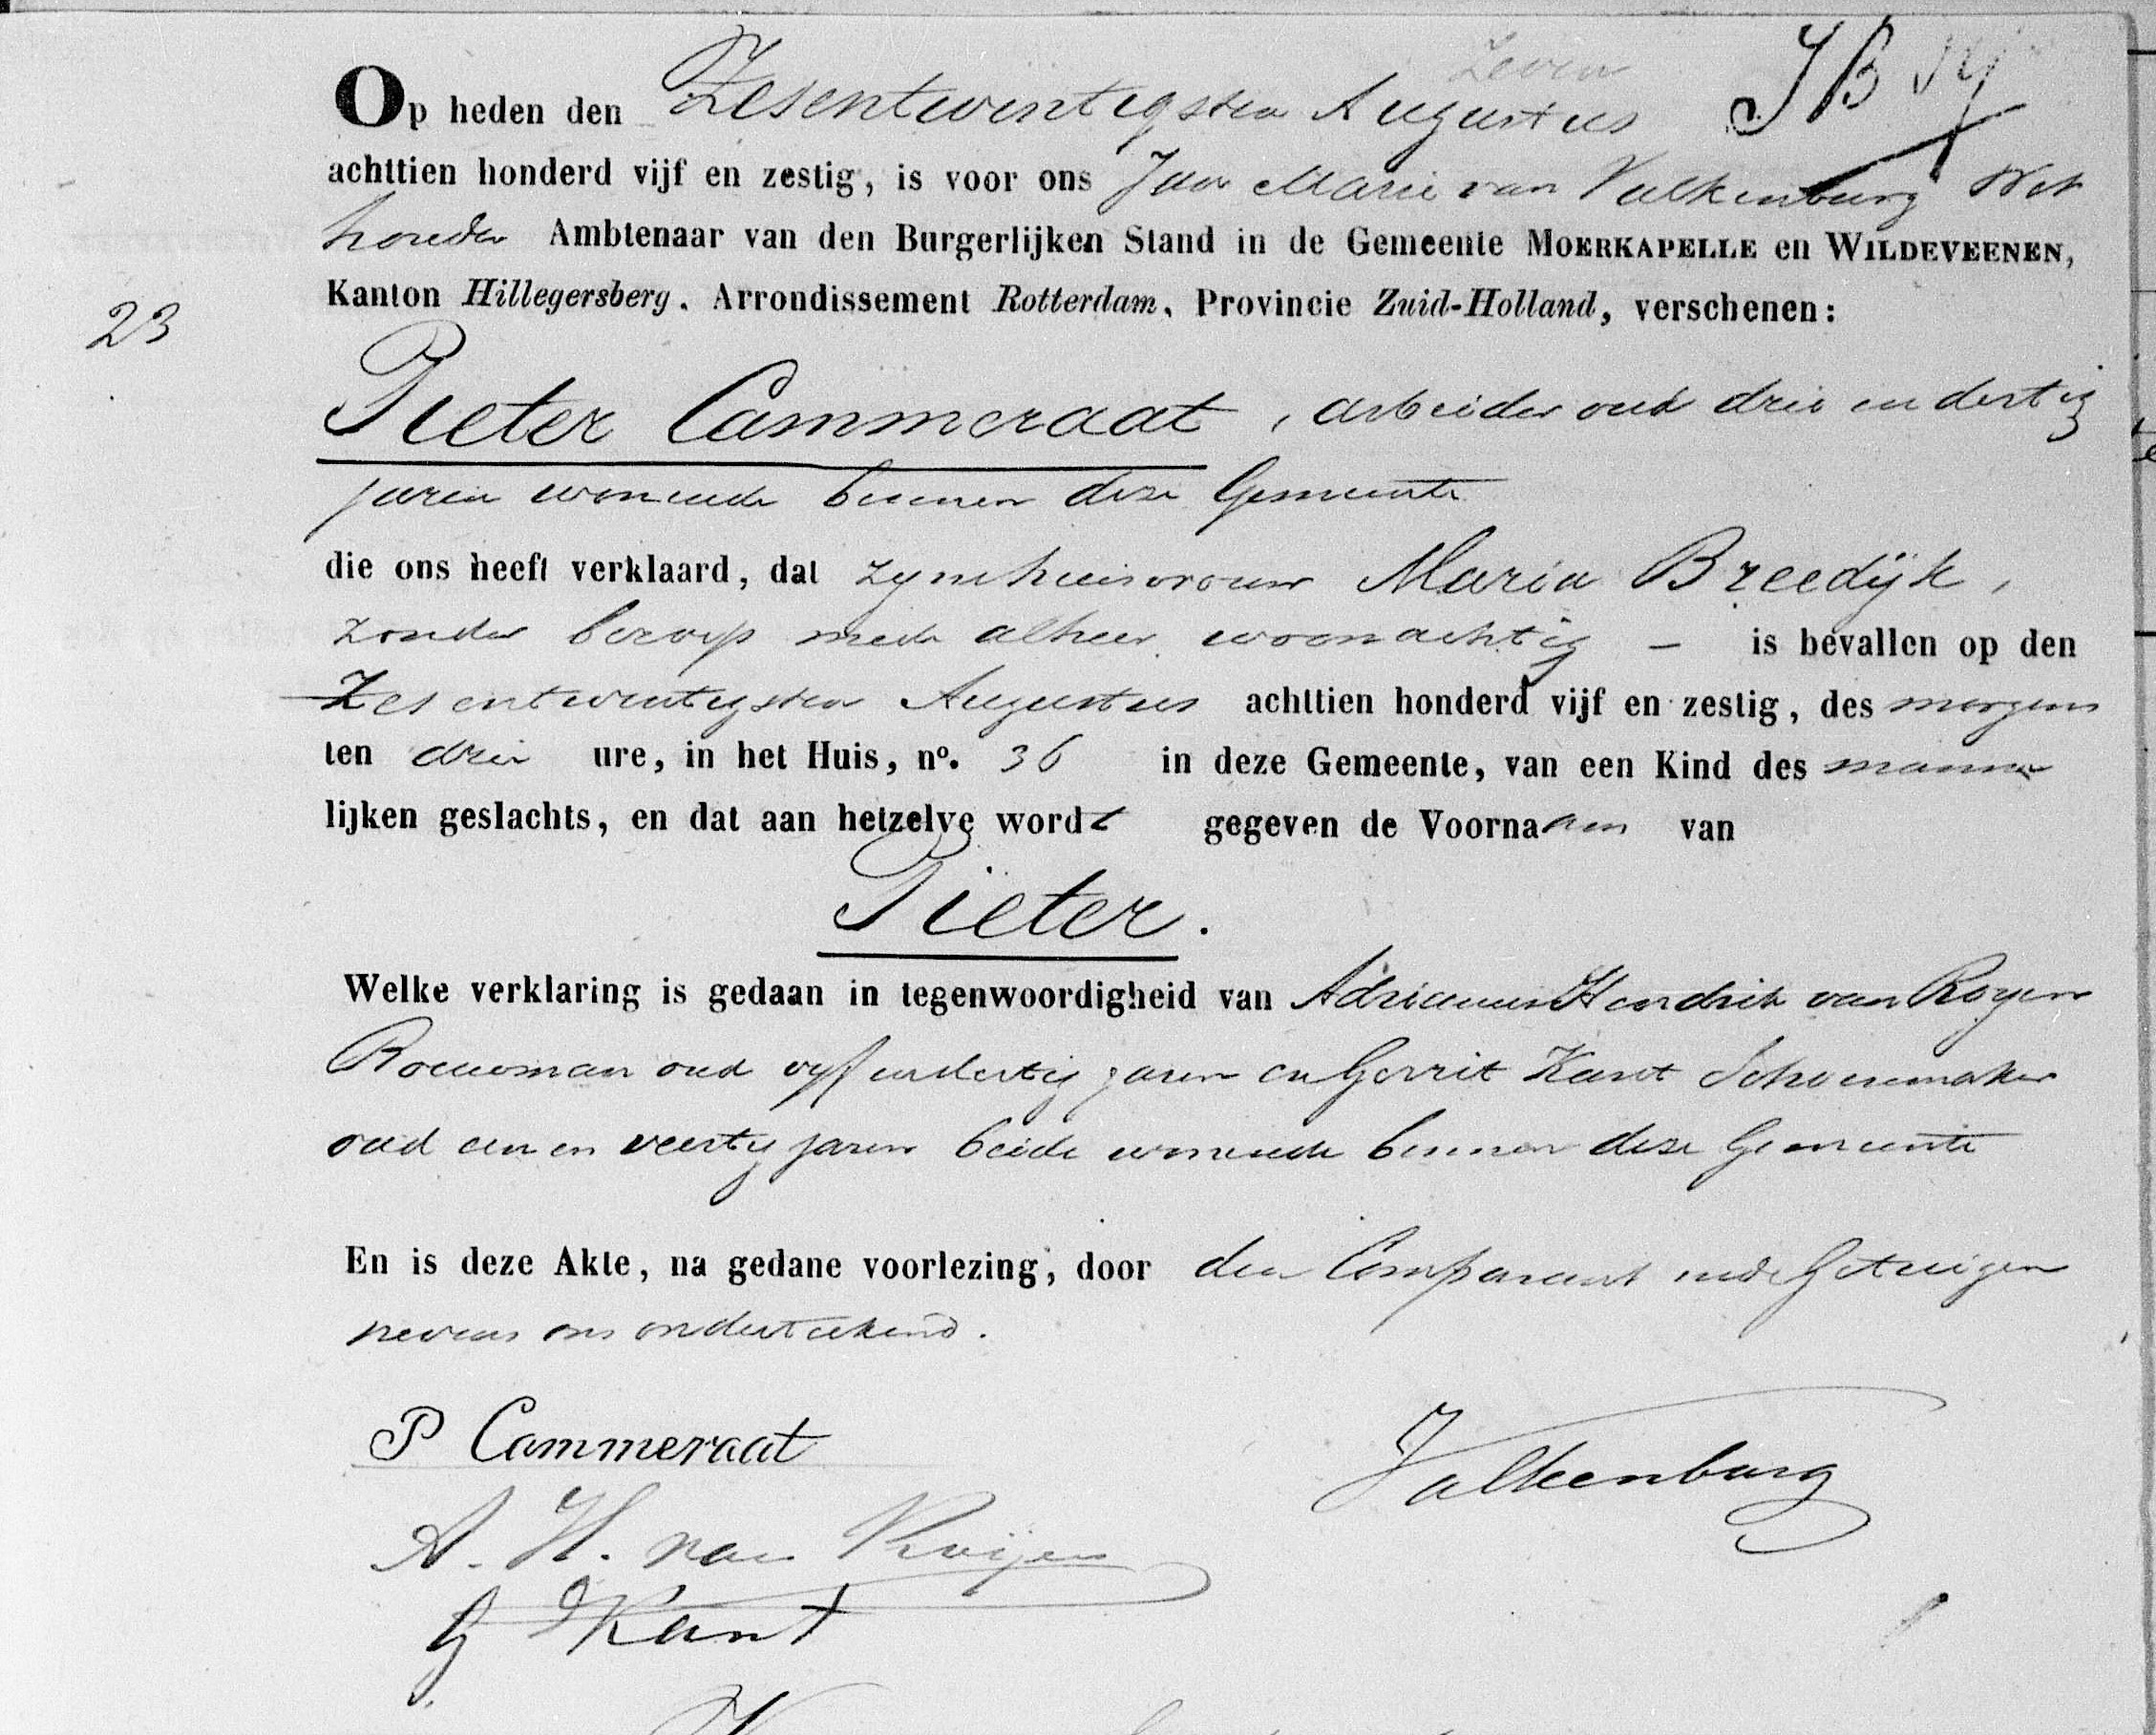 Zeven
Op heden den Zesentwintigsten Augustus
achttien honderd vijf en zestig, is voor ons Jan Marie van Valkenburg Wet
houder Ambtenaar van den Burgerlijken Stand in de Gemeente MOERKAPELLE en WILDEVEENEN,
Kanton Hillegersberg, Arrondissement Rotterdam, Provincie Zuid-Holland, verschenen:
23
Pieter Cammeraat, arbeider oud drie en dertig
jaren wonende binnen deze Gemeente
die ons heeft verklaard, dat zijne huisvrouw Maria Breedijk,
zonder beroep mede alhier woonachtig – is bevallen op den
Zesentwintigsten Augustus achttien honderd vijf en zestig, des morgens
ten drie ure, in het Huis, no. 36 in deze Gemeente, van een Kind des manne
lijken geslachts, en dat aan hetzelve wordt gegeven de Voornaam van
Pieter.
Welke verklaring is gedaan in tegenwoordigheid van Adrianus Hendrik van Royen
Bouwman oud vyf en dertig jaren en Gerrit Kant Schoenmaker
oud een en veertig jaren beide wonende binnen deze Gemeente
En is deze Akte, na gedane voorlezing, door den Comparant en de Getuigen
nevens ons onderteekend.
P Cammeraat
Valkenburg
A. H. van Roijen
G Kant